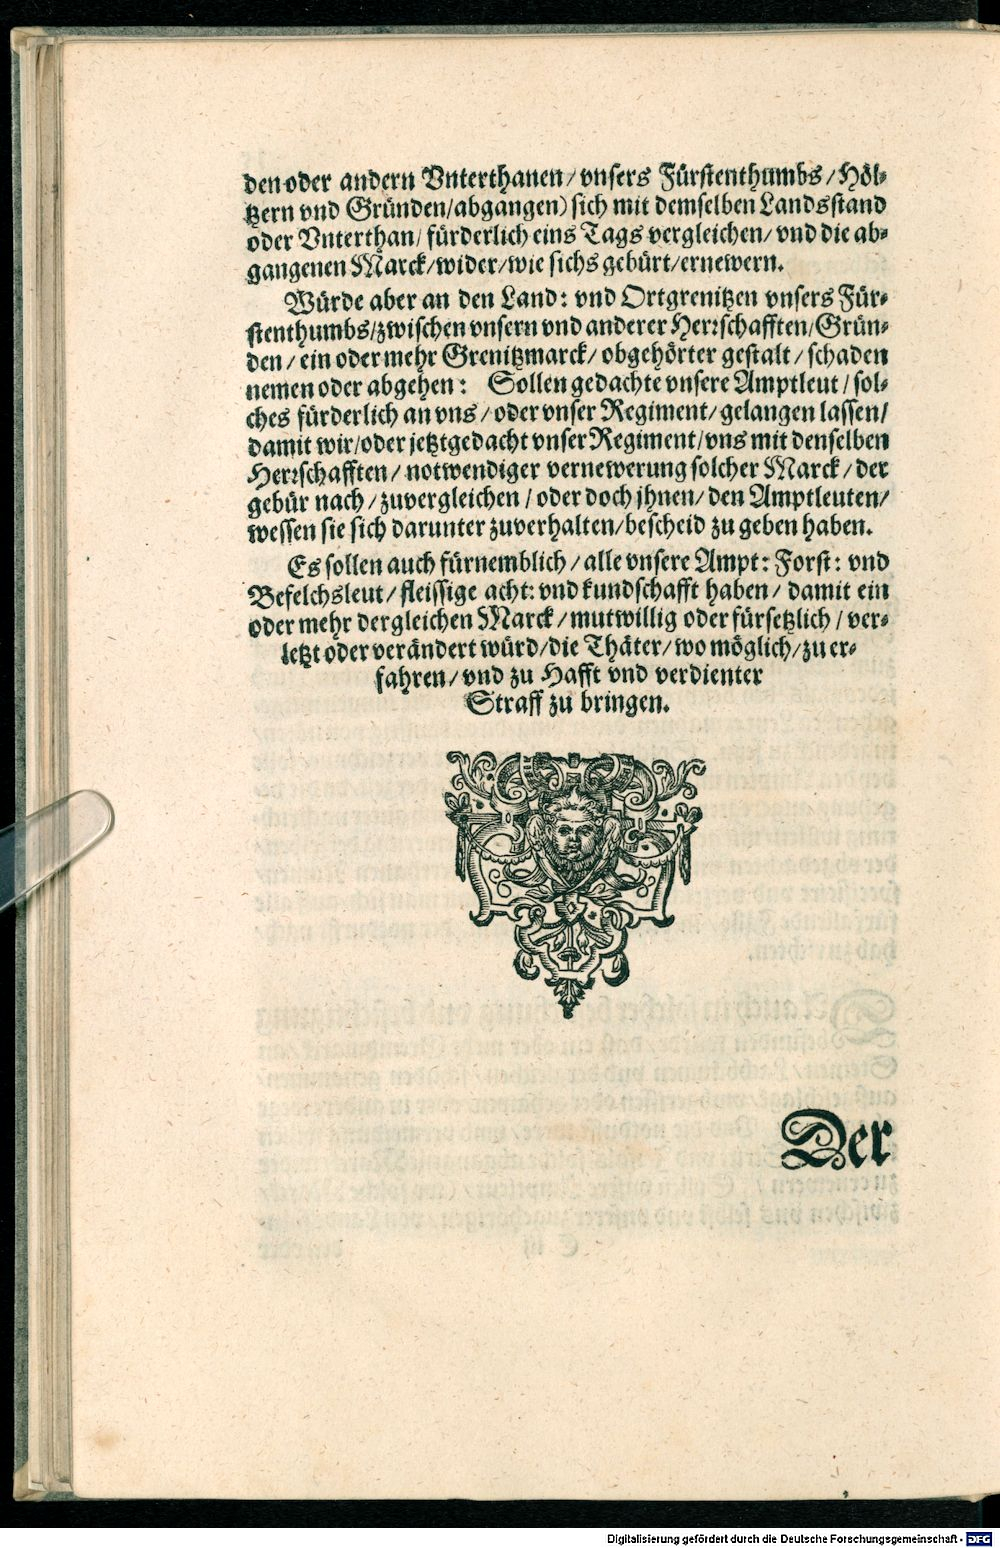 den oder andern Vnterthanen/ vnsers Fürstenthumbs/ Höl-
tzern vnd Gründen/abgangen) sich mit demselben Landsstand
oder Vnterthan/ fürderlich eins Tags vergleichen/ vnd die ab-
gangenen Marck/wider/wie sichs gebürt/ernewern.
Würde aber an den Land: vnd Ortgrenitzen vnsers Für-
stenthumbs/zwischen vnsern vnd anderer Herrschafften/Grün-
den/ ein oder mehr Grenitzmarck/ obgehörter gestalt/ schaden
nemen oder abgehen: Sollen gedachte vnsere Amptleut/ sol-
ches fürderlich an vns/ oder vnser Regiment/ gelangen lassen/
damit wir/oder jetztgedacht vnser Regiment/vns mit denselben
Herrschafften/ notwendiger vernewerung solcher Marck/ der
gebür nach/ zuvergleichen/ oder doch jhnen/ den Amptleuten/
wessen sie sich darunter zuverhalten/bescheid zu geben haben.
Es sollen auch fürnemblich/ alle vnsere Ampt: Forst: vnd
Befelchsleut/ fleissige acht: vnd kundschafft haben/ damit ein
oder mehr dergleichen Marck/ mutwillig oder fürsetzlich/ ver-
letzt oder verändert würd/die Thäter/ wo möglich/ zu er-
fahren/ vnd zu Hafft vnd verdienter
Straff zu bringen.
Der
Digitalisierung gefördert durch die Deutsche Forschungsgemeinschaft - DFG